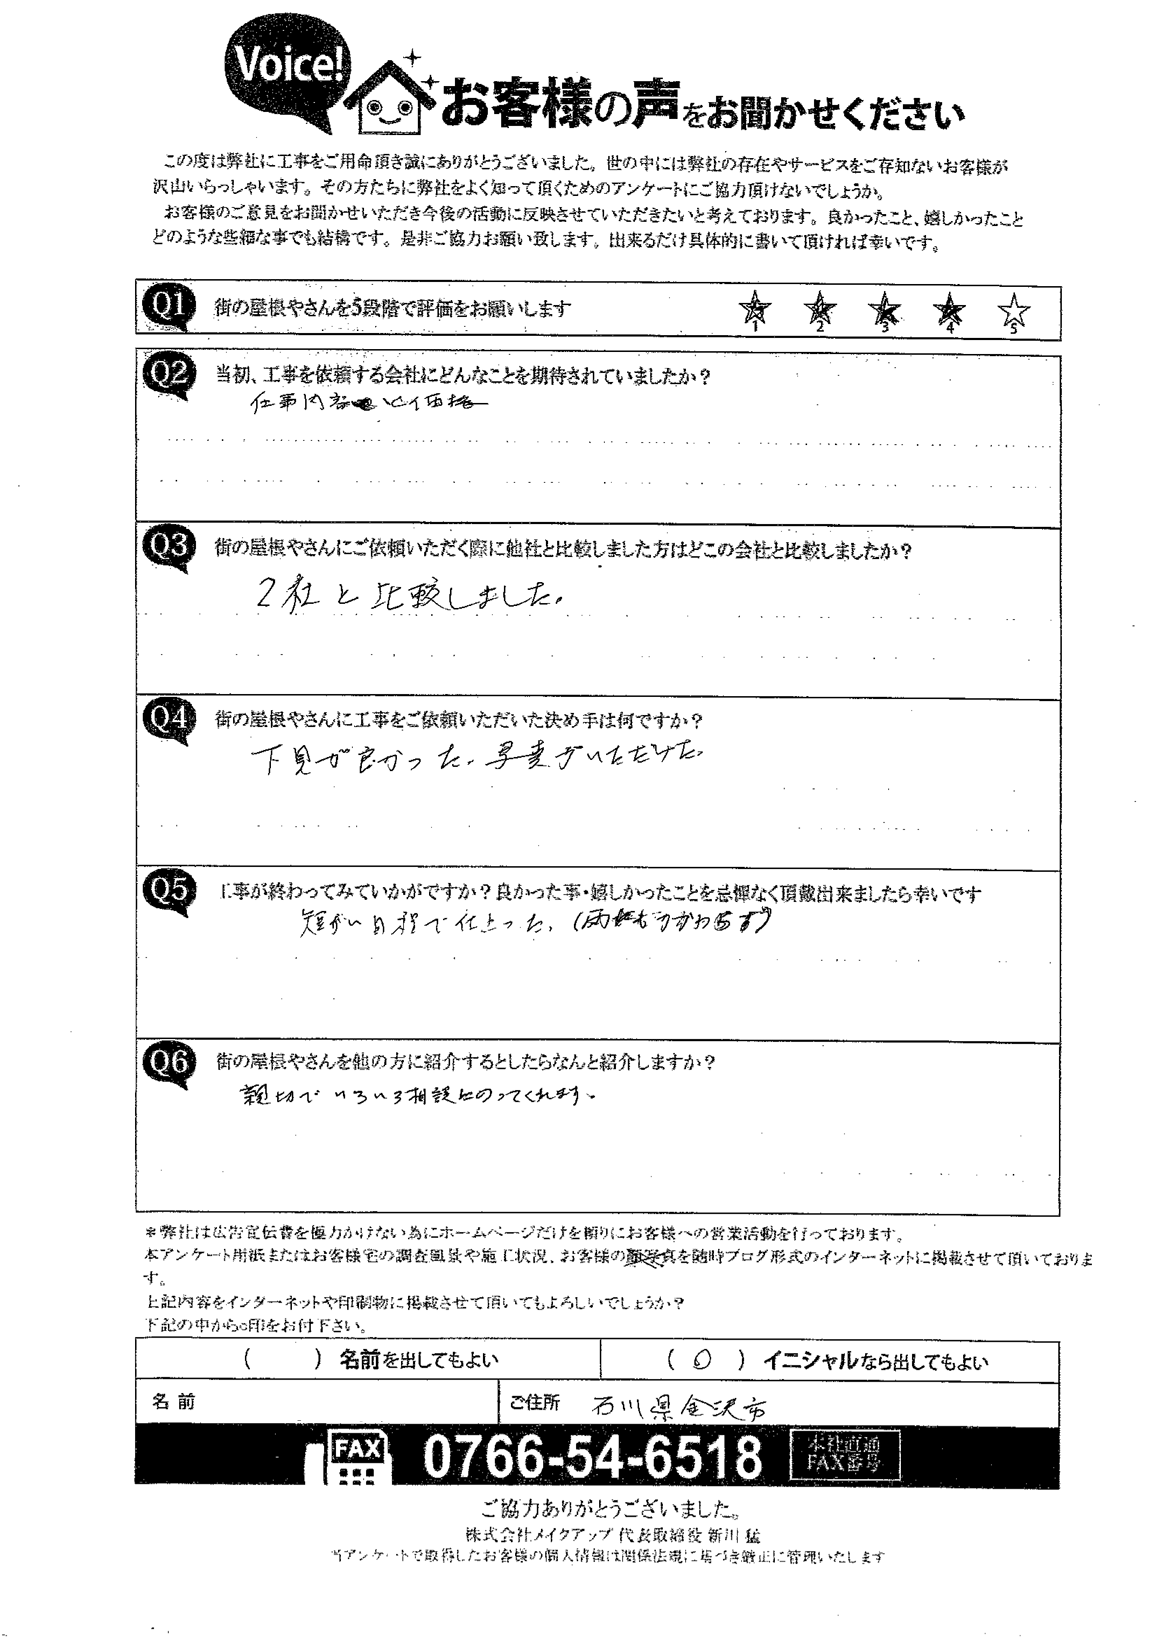 Voice!
お客様の声をお聞かせください
この度は弊社に工事をご用命頂き誠にありがとうございました。世の中には弊社の存在やサービスをご存知ないお客様が
沢山いらっしゃいます。その方たちに弊社をよく知って頂くためのアンケートにご協力頂けないでしょうか。
お客様のご意見をお聞かせいただき今後の活動に反映させていただきたいと考えております。良かったこと、嬉しかったこと
どのような些細な事でも結構です。是非ご協力お願い致します。出来るだけ具体的に書いて頂ければ幸いです。
Q1 街の屋根やさんを5段階で評価をお願いします 1 2 3 4 5
Q2 当初、工事を依頼する会社にどんなことを期待されていましたか？
仕事内容 と価格
Q3 街の屋根やさんにご依頼いただく際に他社と比較しました方はどこの会社と比較しましたか？
2社と比較しました。
Q4 街の屋根やさんに工事をご依頼いただいた決め手は何ですか？
下見が良かった。写真がいただけた
Q5 工事が終わってみていかがですか？良かった事・嬉しかったことを忌憚なく頂戴出来ましたら幸いです
短かい日程で仕上った。(雨 にもかかわらず)
Q6 街の屋根やさんを他の方に紹介するとしたらなんと紹介しますか？
親切でいろいろ相談にのってくれます。
＊弊社は広告宣伝費を極力かけない為にホームページだけを頼りにお客様への営業活動を行っております。
本アンケート用紙またはお客様宅の調査風景や施工状況、お客様の顔写真を随時ブログ形式のインターネットに掲載させて頂いておりま
す。
上記内容をインターネットや印刷物に掲載させて頂いてもよろしいでしょうか？
下記の中から○印をお付下さい。
（　　）名前を出してもよい （ ○ ）イニシャルなら出してもよい
名 前 ご住所 石川県金沢市
FAX 0766-54-6518 本社直通
FAX番号
ご協力ありがとうございました。
株式会社メイクアップ 代表取締役 新川 猛
当アンケートで取得したお客様の個人情報は関係法規に基づき厳正に管理いたします